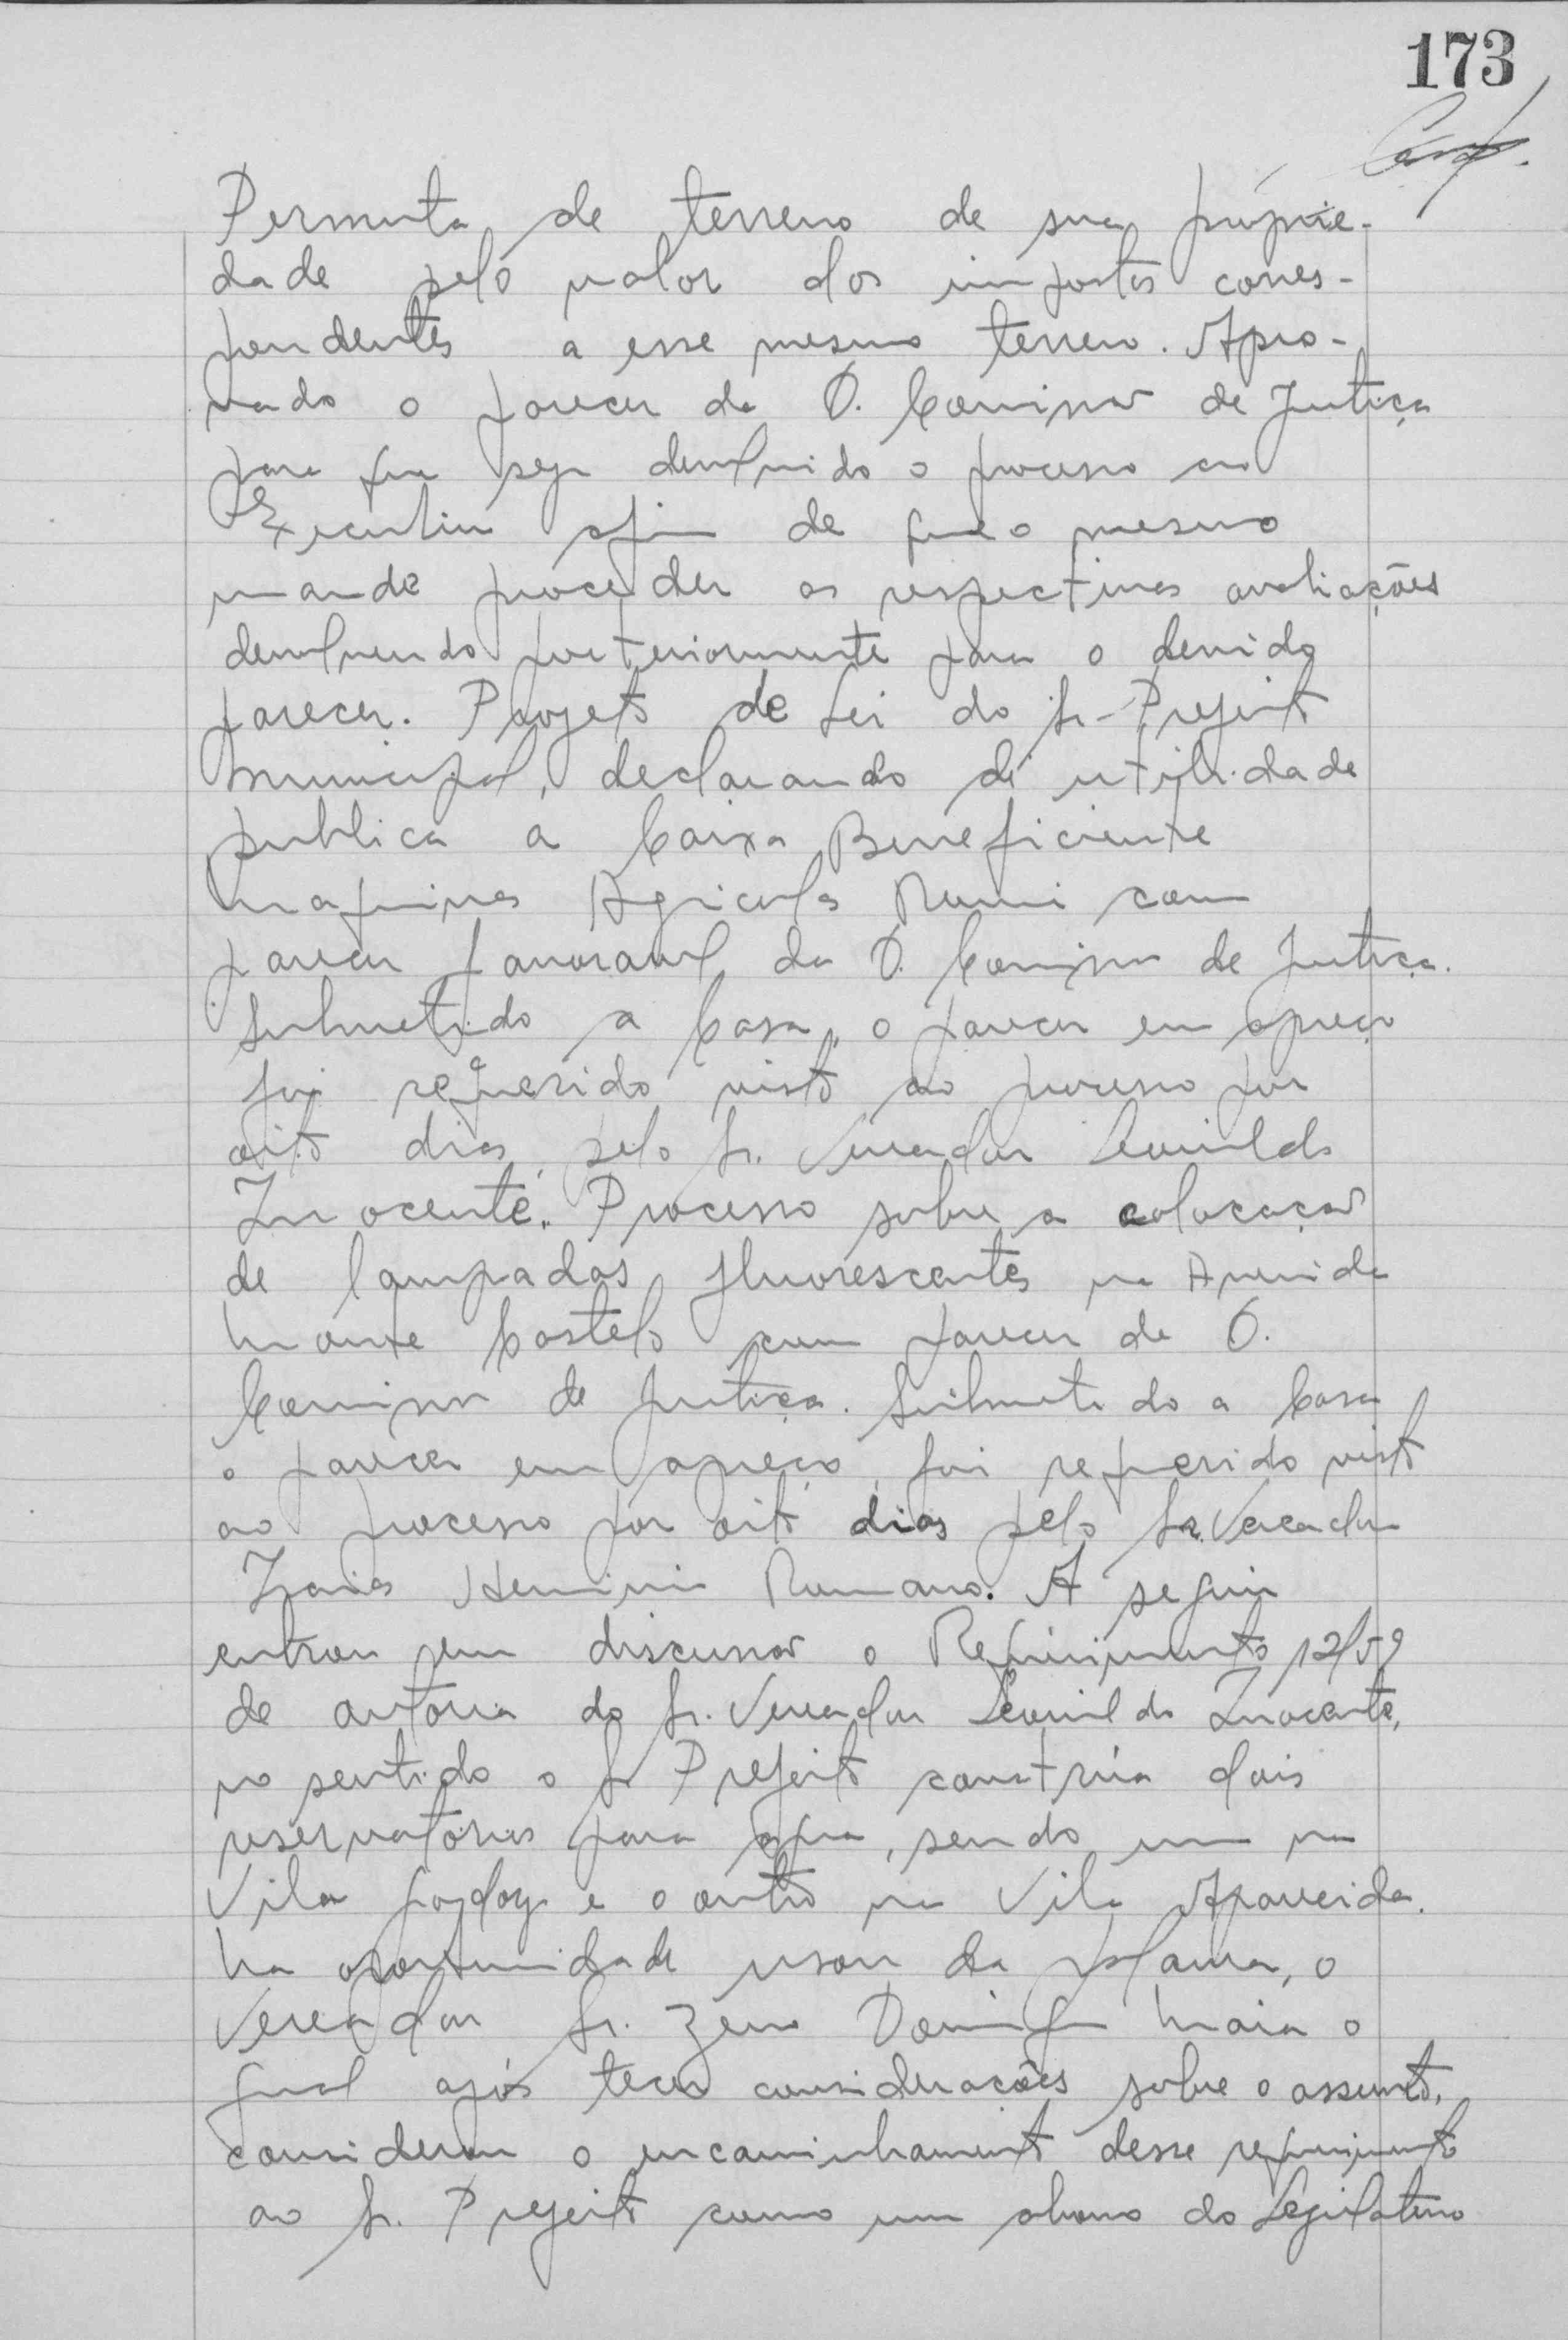 173
Permuta de terreno de sua proprie-
dade pelo valor dos impostos corres-
pondentes a esse mesmo terreno. Apro-
vado o parecer da D. Comissao de Justiça
para que seja devolvido o processo ao
Executivo afim de que o mesmo
mande proceder as respectivas avaliações
devolvendo posteriormente para o devido
parecer. Projeto de Lei do Sr. Prefeito
Municipal, declarando de utilidade
publica a Caixa Beneficiente
Maquinas Agricolas Romi com
parecer favoravel da D. Comissao de Justiça.
Submetido a Casa, o parecer em apreço
foi requerido visto ao processo por
oito dias, pelo Sr. Vereador Leonildo
Inocente. Processo sobre a colocaçao
de lampadas fluorescentes na Avenida
Monte Castelo com parecer da D.
Comissao de Justiça. Submetido a Casa
o parecer em apreço, foi requerido visto
ao processo por oito dias pelo Sr. Vereador
Izaias Herminio Romano. A seguir
entrou em discussao o Requerimento 12/59
de autoria do Sr. Vereador Leonildo Inocente,
no sentido o Sr Prefeito construa dois
reservatorios para agua, sendo um na
Vila Godoy e o outro na Vila Aparecida.
Na oportunidade usou da palavra, o
Vereador Sr. Zeno Domingos Maia o
qual após tecer considerações sobre o assunto,
considerou o encaminhamento desse requerimento
ao Sr. Prefeito como um abono do Legislativo